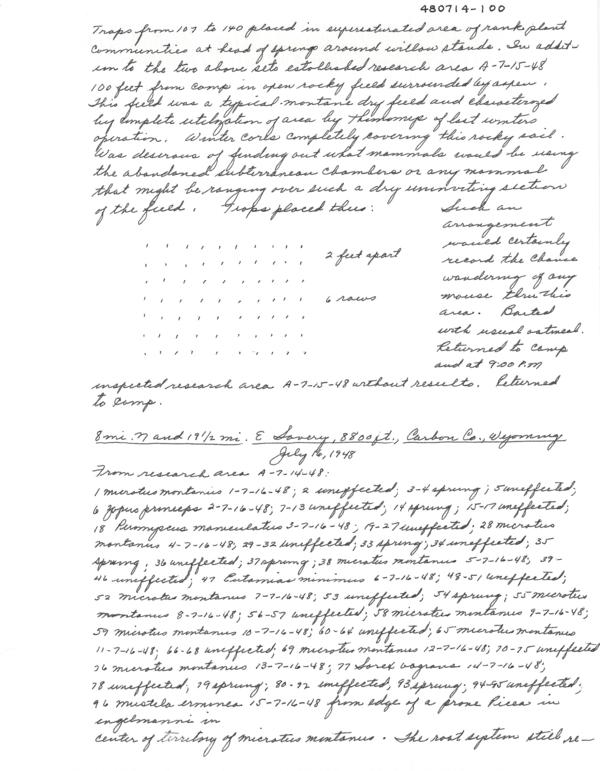 480714-100
Traps from 107 to 140 placed in supersaturated area of rank plant
communities at head of springs around willow stands. In addit-
ion to the two above sets established research area A-7-15-48
100 feet from camp in open rocky field surrounded by aspen.
This field was a typical montane dry field and characterized
by complete utilization of area by Thomomys of last winters
operation. Winter cores completely covering this rocky soil.
Was desirous of finding out what mammals would be using
the abandoned subterranean chambers or any mammal
that might be ranging over such a dry uninviting section
of the field. Traps placed thus:
Such an
arrangement
would certainly
record the chance
wandering of any
mouse thru this
area. Baited
with usual oatmeal.
Returned to camp
and at 9:00 P.M
2 feet apart
6 rows
inspected research area A-7-15-48 without results. Returned
to camp.
8 mi. N and 19 1/2 mi. E Savery, 8800 ft., Carbon Co., Wyoming
July 16, 1948
From research area A-7-14-48:
1 microtus montanus 1-7-16-48; 2 uneffected; 3-4 sprung; 5 uneffected;
6 Zapus princeps 2-7-16-48; 7-13 uneffected; 14 sprung; 15-17 uneffected;
18 Peromyscus maniculatus 3-7-16-48; 19-27 uneffected; 28 microtus
montanus 4-7-16-48; 29-32 uneffected; 33 sprung; 34 uneffected; 35
sprung; 36 uneffected; 37 sprung; 38 microtus montanus 5-7-16-48; 39-
46 uneffected; 47 Eutamias minimus 6-7-16-48; 48-51 uneffected;
52 microtus montanus 7-7-16-48; 53 uneffected; 54 sprung; 55 microtus
montanus 8-7-16-48; 56-57 uneffected; 58 microtus montanus 9-7-16-48;
59 microtus montanus 10-7-16-48; 60-64 uneffected; 65 microtus montanus
11-7-16-48; 66-68 uneffected; 69 microtus montanus 12-7-16-48; 70-75 uneffected
76 microtus montanus 13-7-16-48; 77 Sorex vagrans 14-7-16-48;
78 uneffected; 79 sprung; 80-92 uneffected; 93 sprung; 94-95 uneffected;
96 mustela erminea 15-7-16-48 from edge of a prone Picea in
engelmanni in
center of territory of microtus montanus. The root system still re-